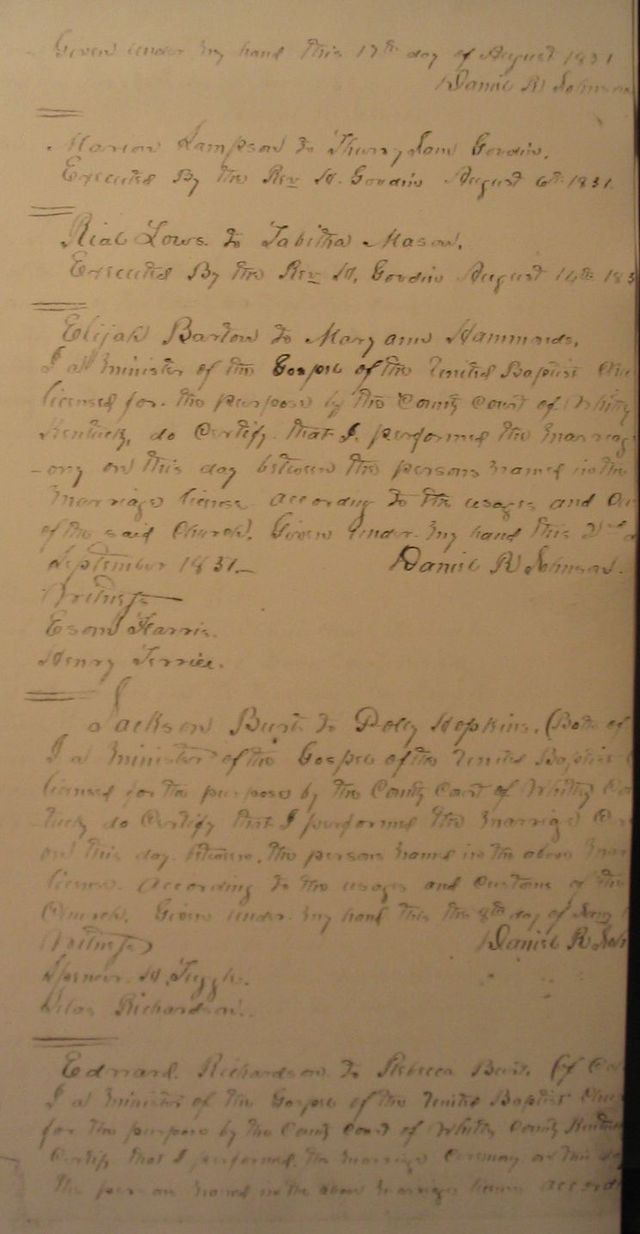 Given under my hand this 17th day of August 1831
Daniel R Johnson
Marion Lampson to Godwin.
Executed By the Rev H. Godwin August 6th 1831.
Lows to Tabitha Mason.
Executed By the Rev H. Godwin August 14th 183
Elijah Bartow to Mary ann Hammonds.
I a minister of the Gospel of the United Baptist Chu
licensed for the purpose by the County Court of Whitly
Kentucky, do Certify that I performed the marriag
-ony on this day between the persons named in the
marriage license according to the usages and Cus
of the said Church. Given under my hand this 2nd
September 1831.— Daniel R Johnson.
Witness
Esom Harris.
Henry Terrill.
Jackson Burt to Polly Hopkins. (Both of
I a minister of the Gospel of the United Baptist
licensed for the purpose by the County Court of Whitly
tucky do Certify that I performed the marriage
on this day between the persons named in the above
license According to the usages and customs of the
Church. Given under my hand this the 8th day of
Witness Daniel R
Spencer H. Tuggle.
Silas Richardson.
Edward Richardson to Rebecca Burt. (of
I a minister of the Gospel of the United Baptist
for the purpose by the County Court of Whitly County
Certify that I performed the marriage Ceremony on this
the person named in the above marriage license